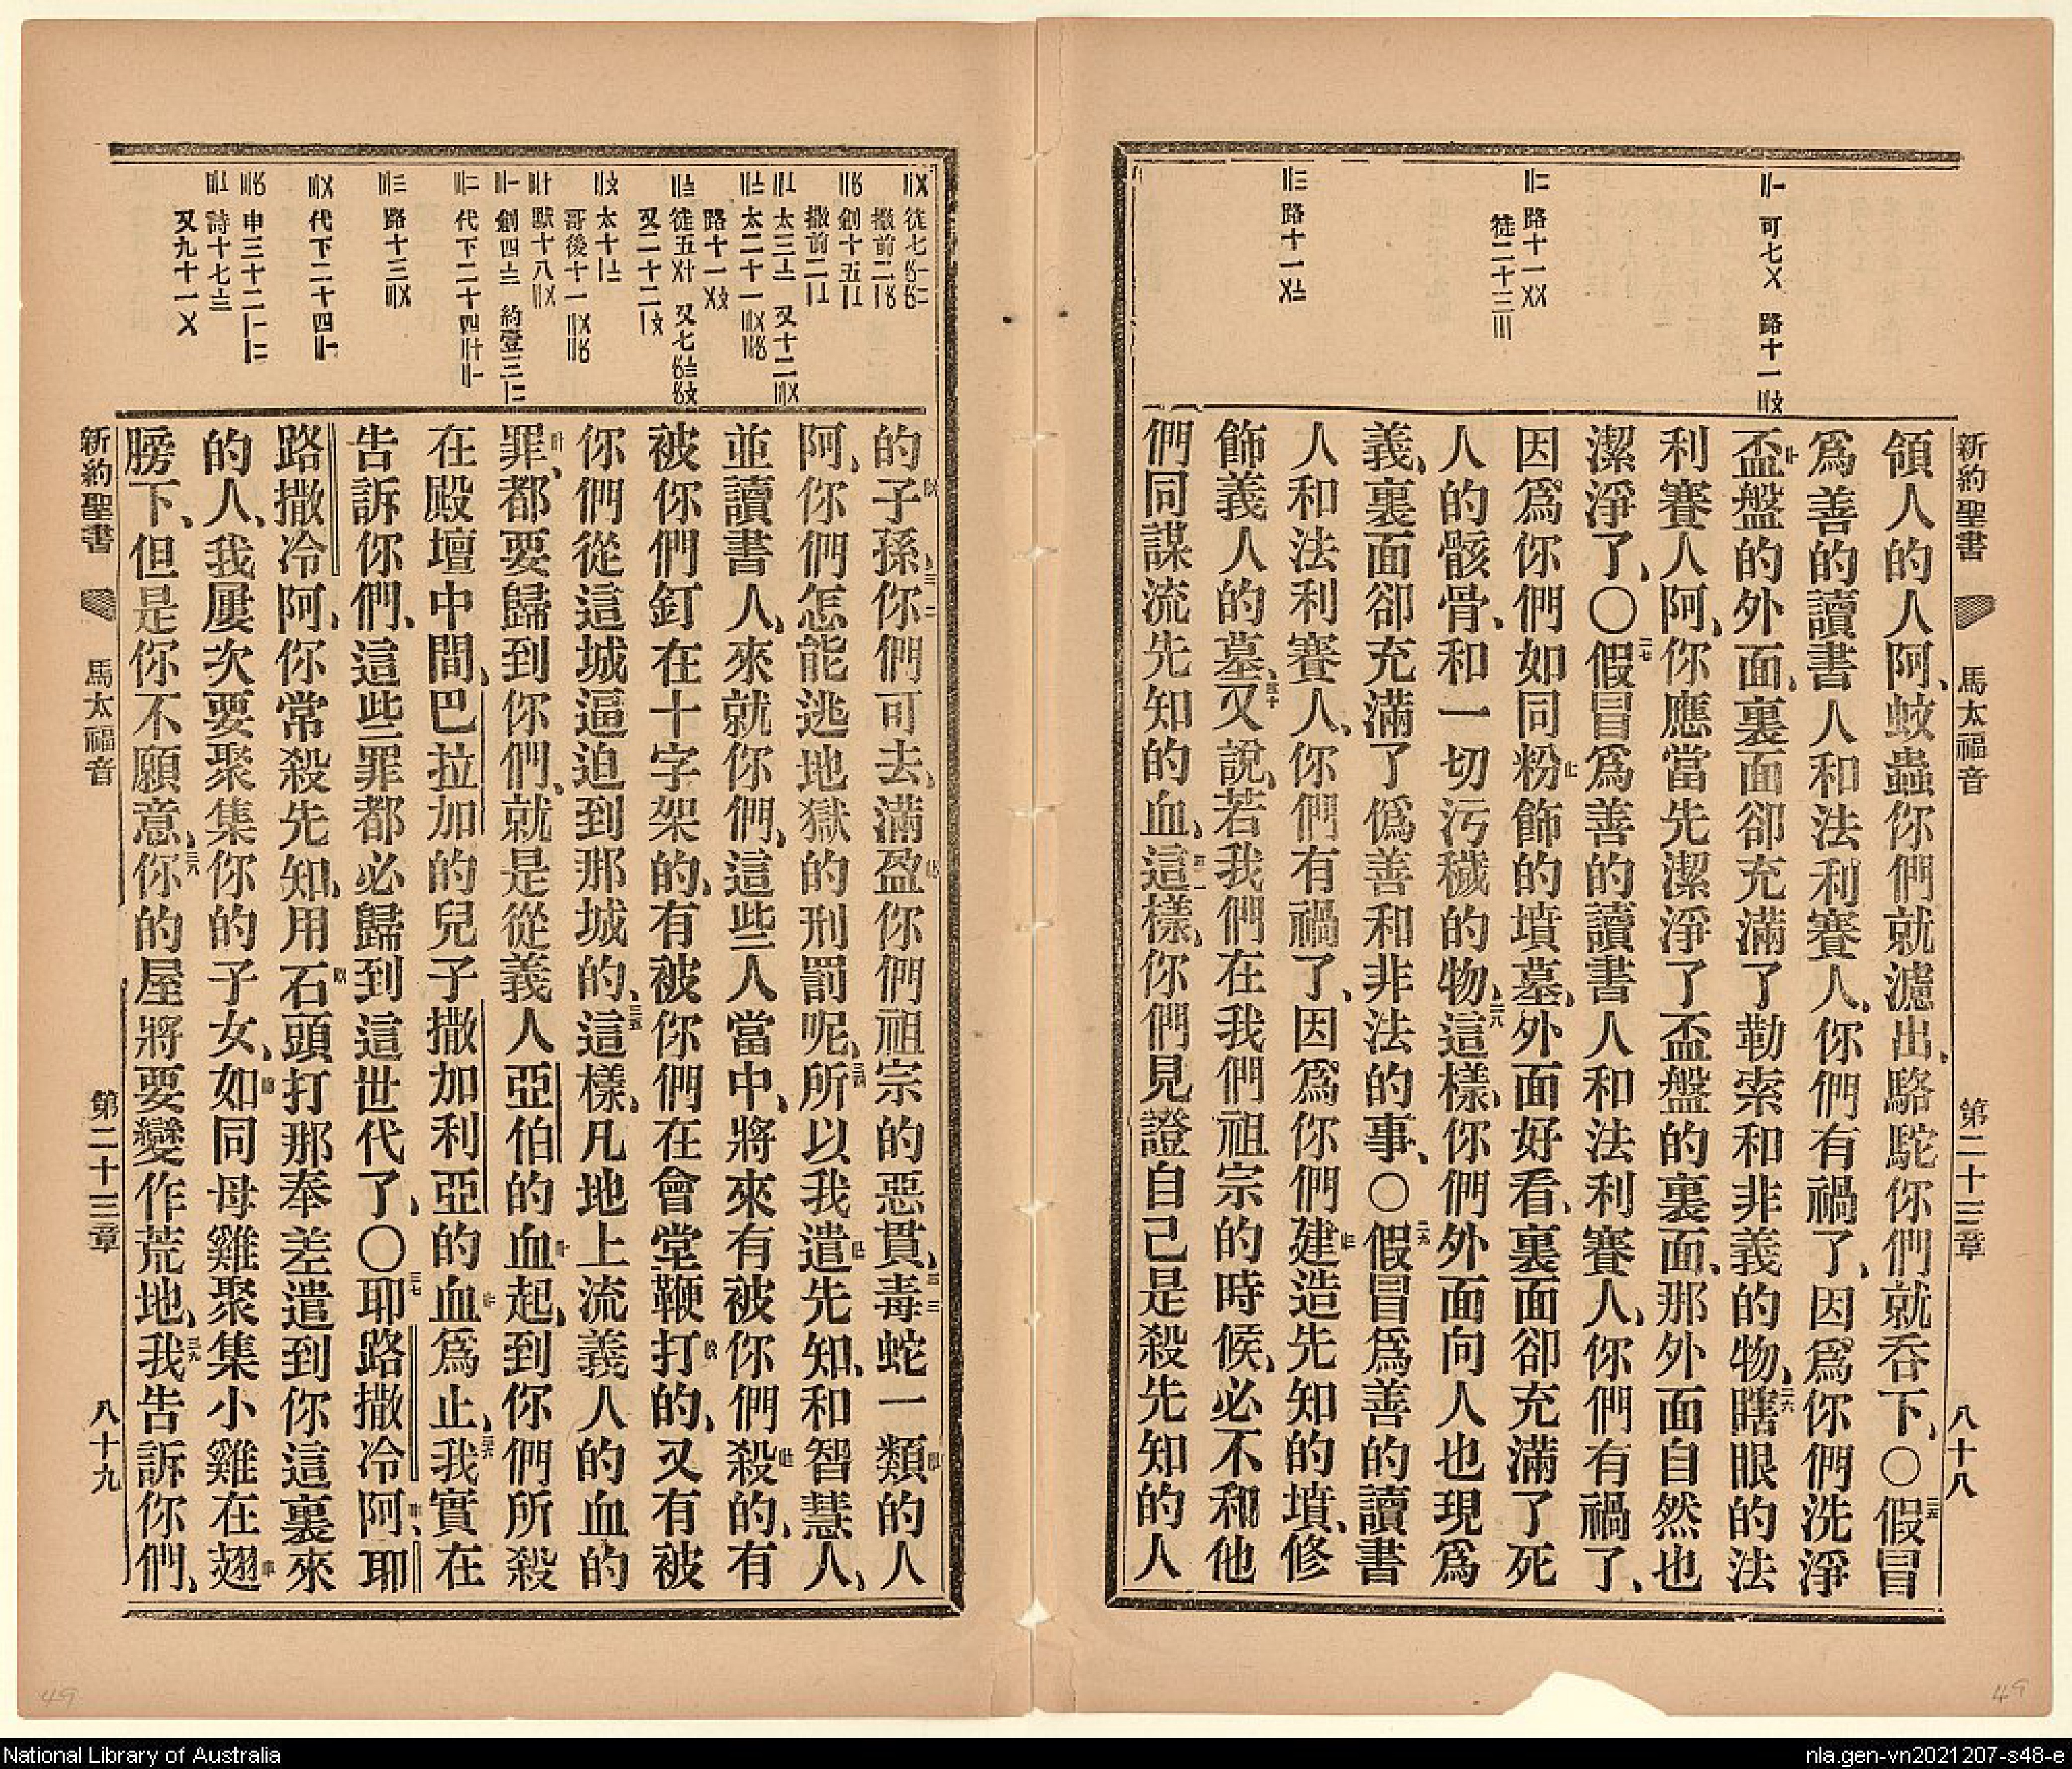 新約聖書 馬太福音 第二十三章 八十八
可七〤 路十一
路十一〤〤
徒二十三〣
路十一
領人的人阿、蚊蟲你們就濾出、駱駝你們就吞下、〇二五假冒
爲善的讀書人和法利賽人、你們有禍了、因爲你們洗淨
盃盤的外面、裏面卻充滿了勒索和非義的物、二六瞎眼的法
利賽人阿、你應當先潔淨了盃盤的裏面、那外面自然也
潔淨了、〇二七假冒爲善的讀書人和法利賽人、你們有禍了、
因爲你們如同粉飾的墳墓、外面好看、裏面卻充滿了死
人的骸骨、和一切污穢的物、二八這樣、你們外面向人也現爲
義、裏面卻充滿了僞善和非法的事、〇二九假冒爲善的讀書
人和法利賽人、你們有禍了、因爲你們建造先知的墳、修
飾義人的墓、三十又說、若我們在我們祖宗的時候、必不和他
們同謀流先知的血、三一這樣、你們見證自己是殺先知的人
徒七
撒前二
創十五
撒前二
太三 又十二
太二十一
路十一
徒五 又七
又二十二
太十
哥後十一
默十八
創四 約壹三
代下二十四
路十三
代下二十四
申三十二
詩十七
又九十一〤
的子孫、三二你們可去、滿盈你們祖宗的惡貫、三三毒蛇一類的人
阿、你們怎能逃地獄的刑罰呢、三四所以我遣先知、和智慧人、
並讀書人、來就你們、這些人當中、將來有被你們殺的、有
被你們釘在十字架的、有被你們在會堂鞭打的、又有被
你們從這城逼迫到那城的、三五這樣、凡地上流義人的血的
罪、都要歸到你們、就是從義人亞伯的血起、到你們所殺
在殿壇中間、巴拉加的兒子撒加利亞的血爲止、三六我實在
告訴你們、這些罪都必歸到這世代了、〇三七耶路撒冷阿、耶
路撒冷阿、你常殺先知、用石頭打那奉差遣到你這裏來
的人、我屢次要聚集你的子女、如同母雞聚集小雞在翅
膀下、但是你不願意、三八你的屋將要變作荒地、三九我告訴你們、
新約聖書 馬太福音 第二十三章 八十九
49
49
National Library of Australia
nla.gen-vn2021207-s48-e